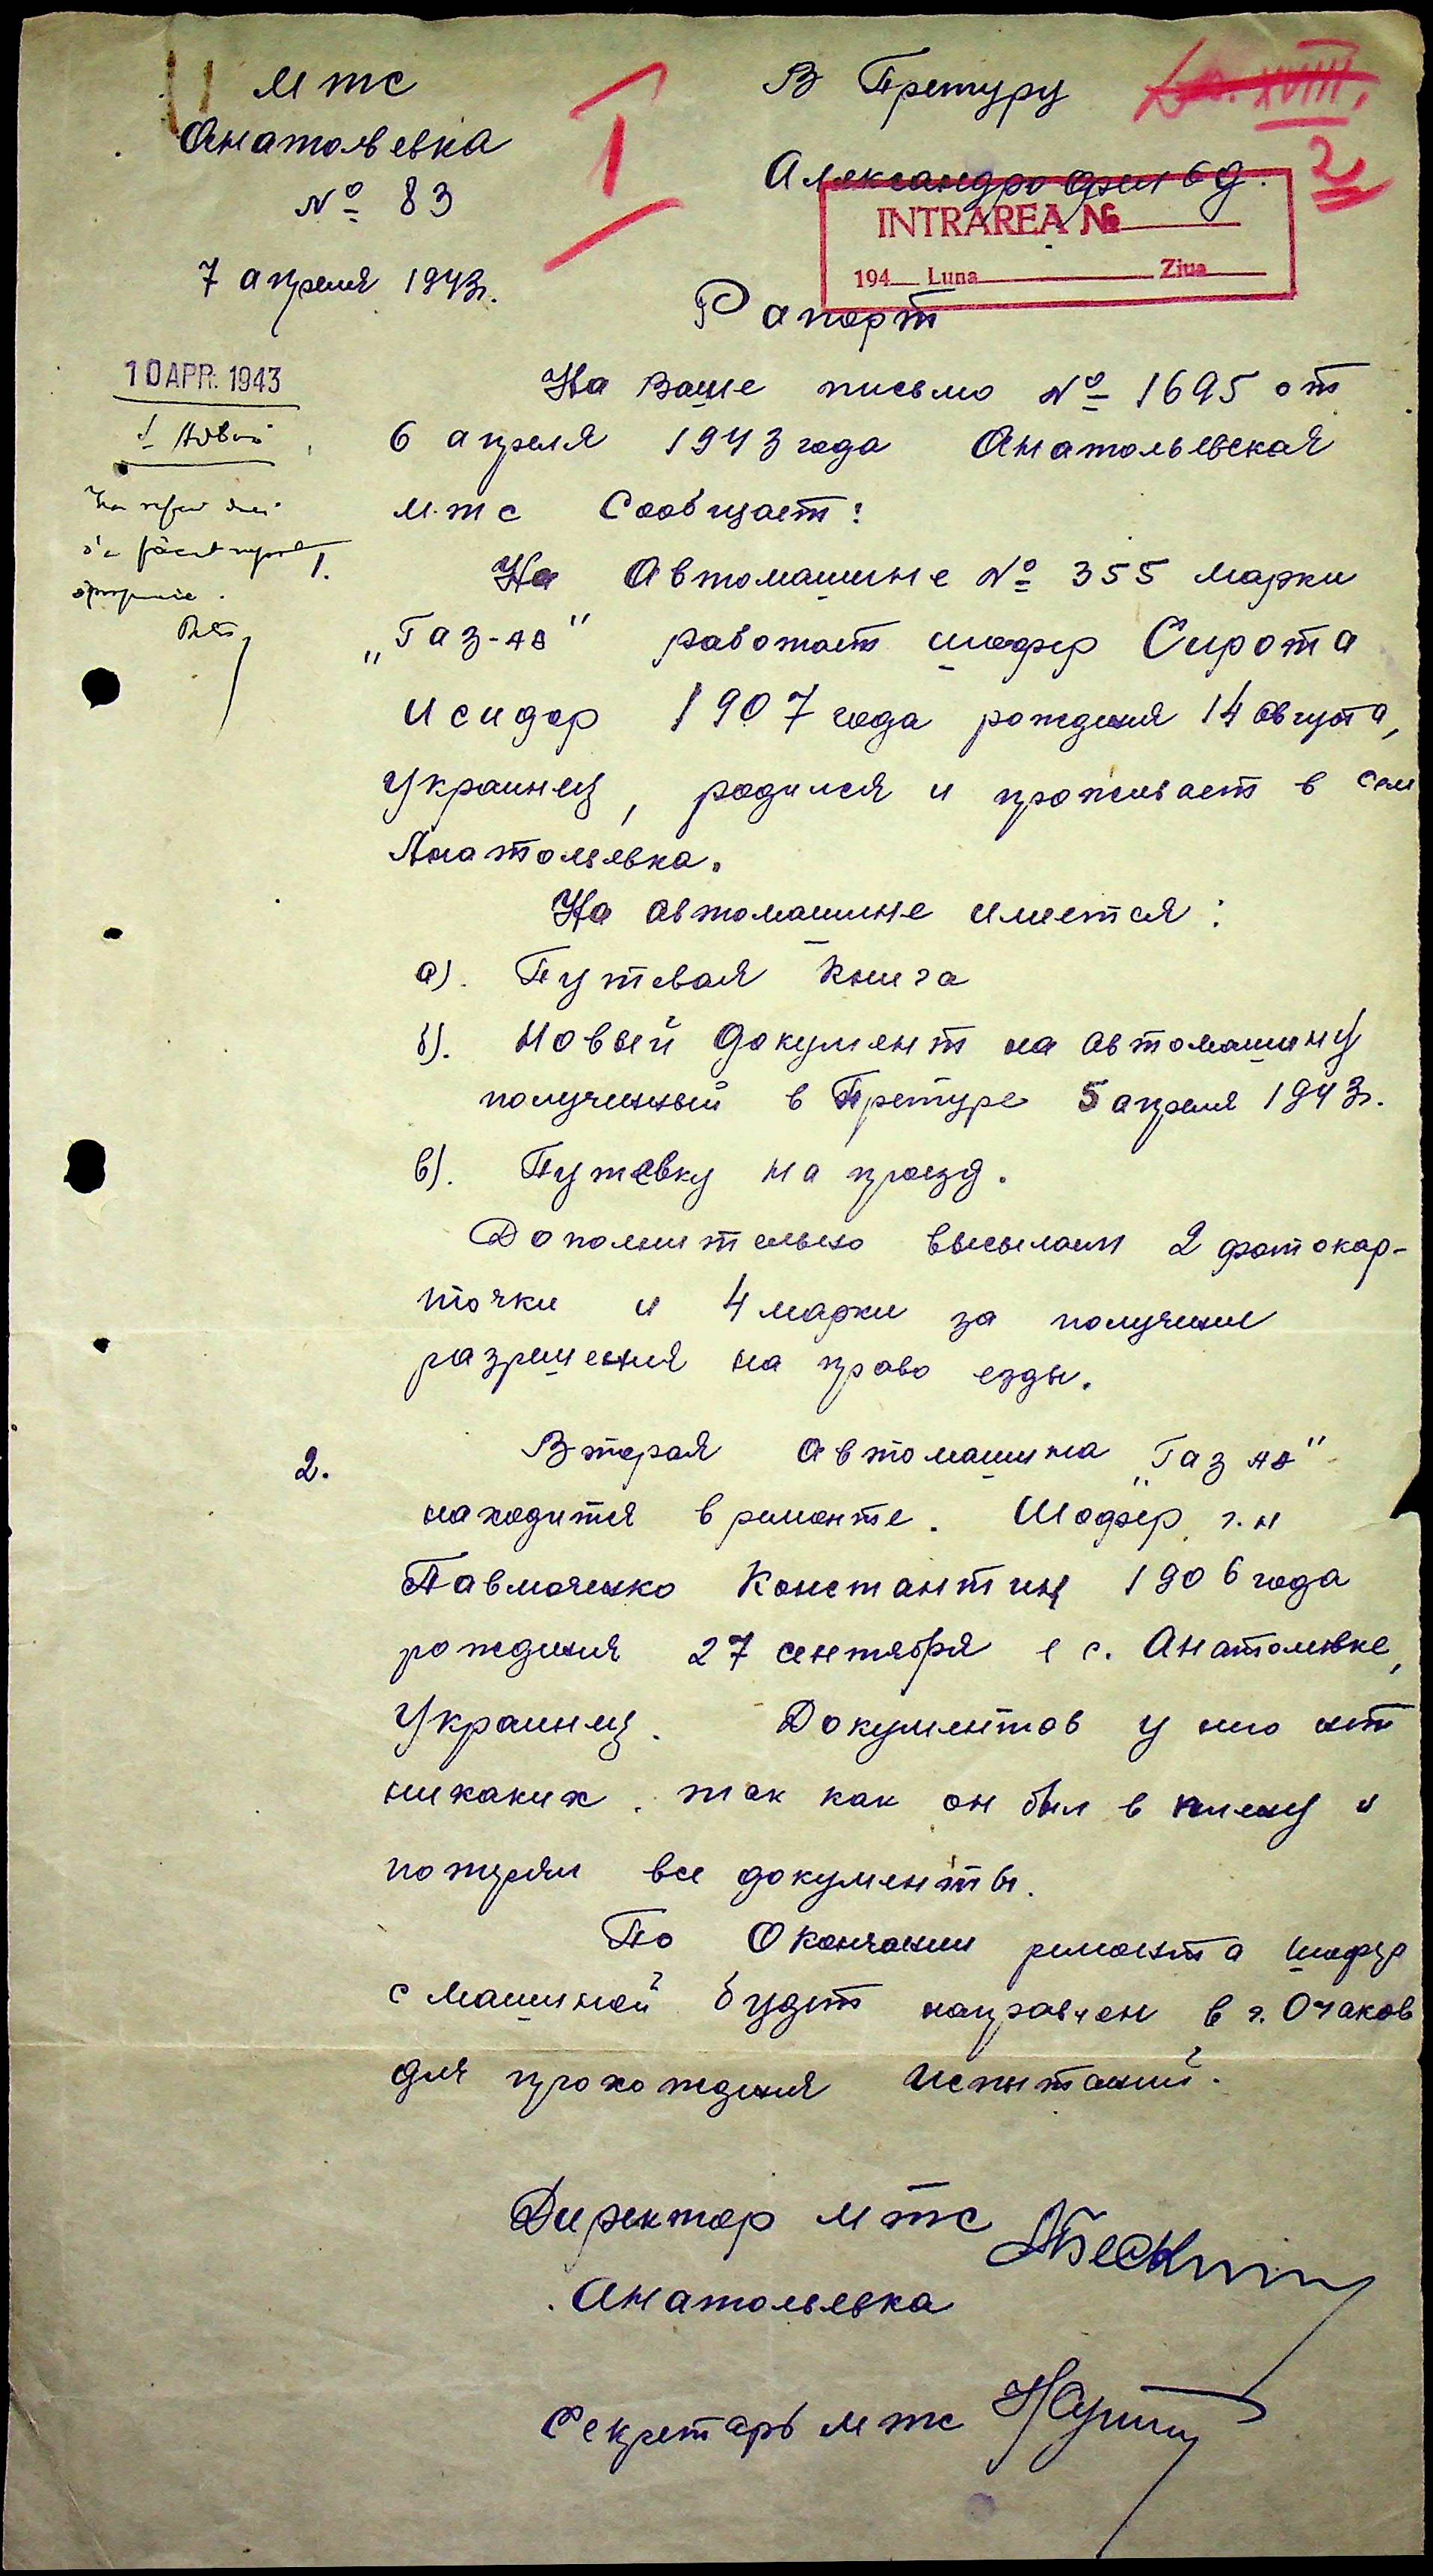 МТС
Анатольевка
№ 83
7 апреля 1943г.
В Претуру
Александрофильд.
XVIII.
I
2
INTRAREA №
194 Luna Ziua
Рапорт
10 APR. 1943
На Ваше письмо № 1695 от
6 апреля 1943 года Анатольевская
мтс Сообщает:
1. На Автомашине № 355 марки
„Газ-АА" работает шофер Сирота
Исидор 1907 года рождения 14 августа,
украинец, родился и проживает в селе
Анатольевка.
На автомашине имеется:
а). Путевая Книга
б). Новый документ на автомашину
полученный в Претуре 5 апреля 1943г.
в). Путевку на проезд.
Дополнительно высылаем 2 фотокар-
точки и 4 марки за получение
разрешения на право езды.
2. Вторая Автомашина „Газ АА"
находится в ремонте. Шофер г.н
Павмоченко Константин 1906 года
рождения 27 сентября в с. Анатолевке,
Украинец. Документов у него нет
никаких, так как он был в плену и
потерял все документы.
По Окончании ремонта шофер
с машиной будет направлен в г. Очаков
для прохождения испытаний.
Директор мтс
Анатольевка
Секретарь мтс